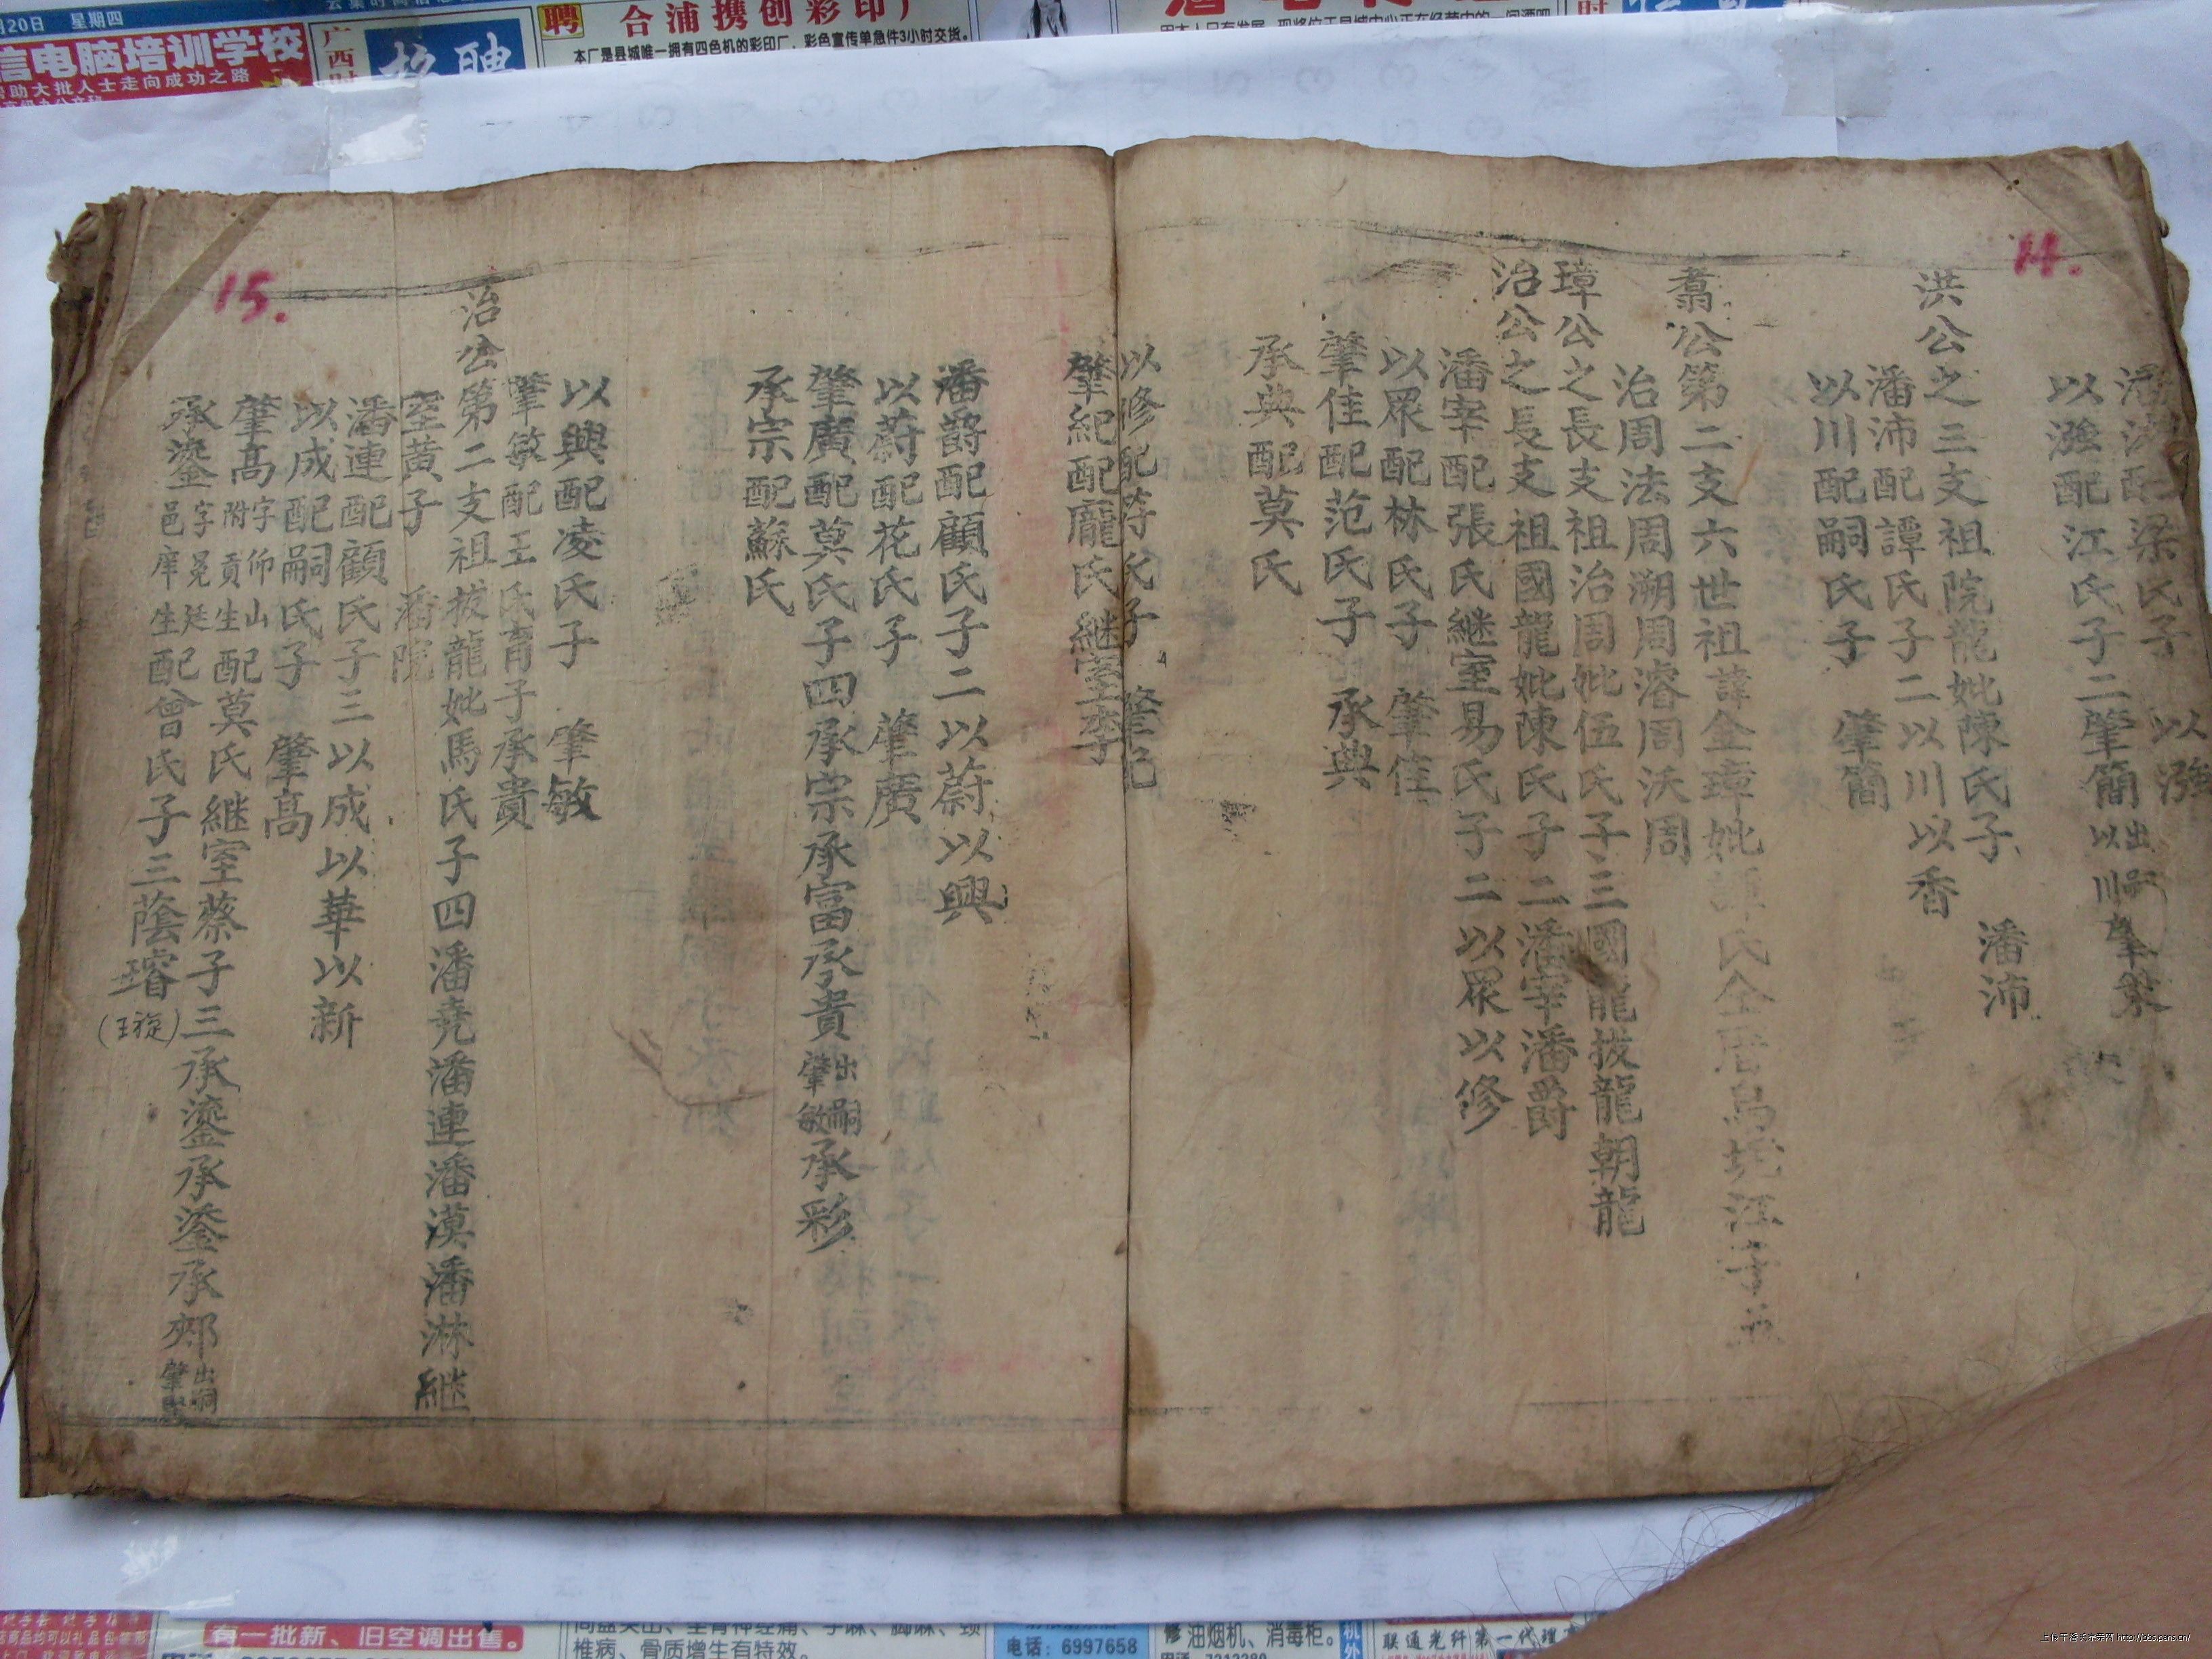 20日 星期四
信电脑培训学校
帮助大批人士走向成功之路
聘
合浦携创彩印厂
本厂是县城唯一拥有四色机的彩印厂，彩色宣传单急件3小时交货。
招聘
14.
配梁氏子 以㵋
配江氏子二肇簡出嗣以川肇策
洪公之三支祖院龍妣陳氏子 潘沛
潘沛配譚氏子二以川以香
以川配嗣氏子 肇簡
翥公第二支六世祖諱金璋妣
治周法周溯周濬周沃周
璋公之長支祖治周妣伍氏子三國龍拔龍朝龍
治公之長支祖國龍妣陳氏子二潘宰潘爵
潘宰配張氏繼室易氏子二以眾以修
以眾配林氏子 肇佳
肇佳配范氏子 承典
承典配莫氏
以修配符氏子 肇紀
肇紀配龐氏繼室李
潘爵配顧氏子二以蔚以興
以蔚配花氏子 肇廣
肇廣配莫氏子四承宗承富承貴出嗣肇敏承彩
承宗配蘇氏
以興配凌氏子 肇敏
肇敏配王氏育子承貴
治公第二支祖拔龍妣馬氏子四潘堯潘連潘漠潘淋繼
室黃子 潘院
潘連配顧氏子三以成以華以新
以成配嗣氏子 肇高
肇高字仰山附貢生配莫氏繼室蔡子三承鎏承鋈承郟出嗣肇
承鎏字冕廷邑庠生配曾氏子三蔭璿
(璇)
15.
有一批新、旧空调出售。
椎病、骨质增生有特效。
电话：6997658
修油烟机、消毒柜。
联通光纤第一代理
http://bbs.pans.cn/